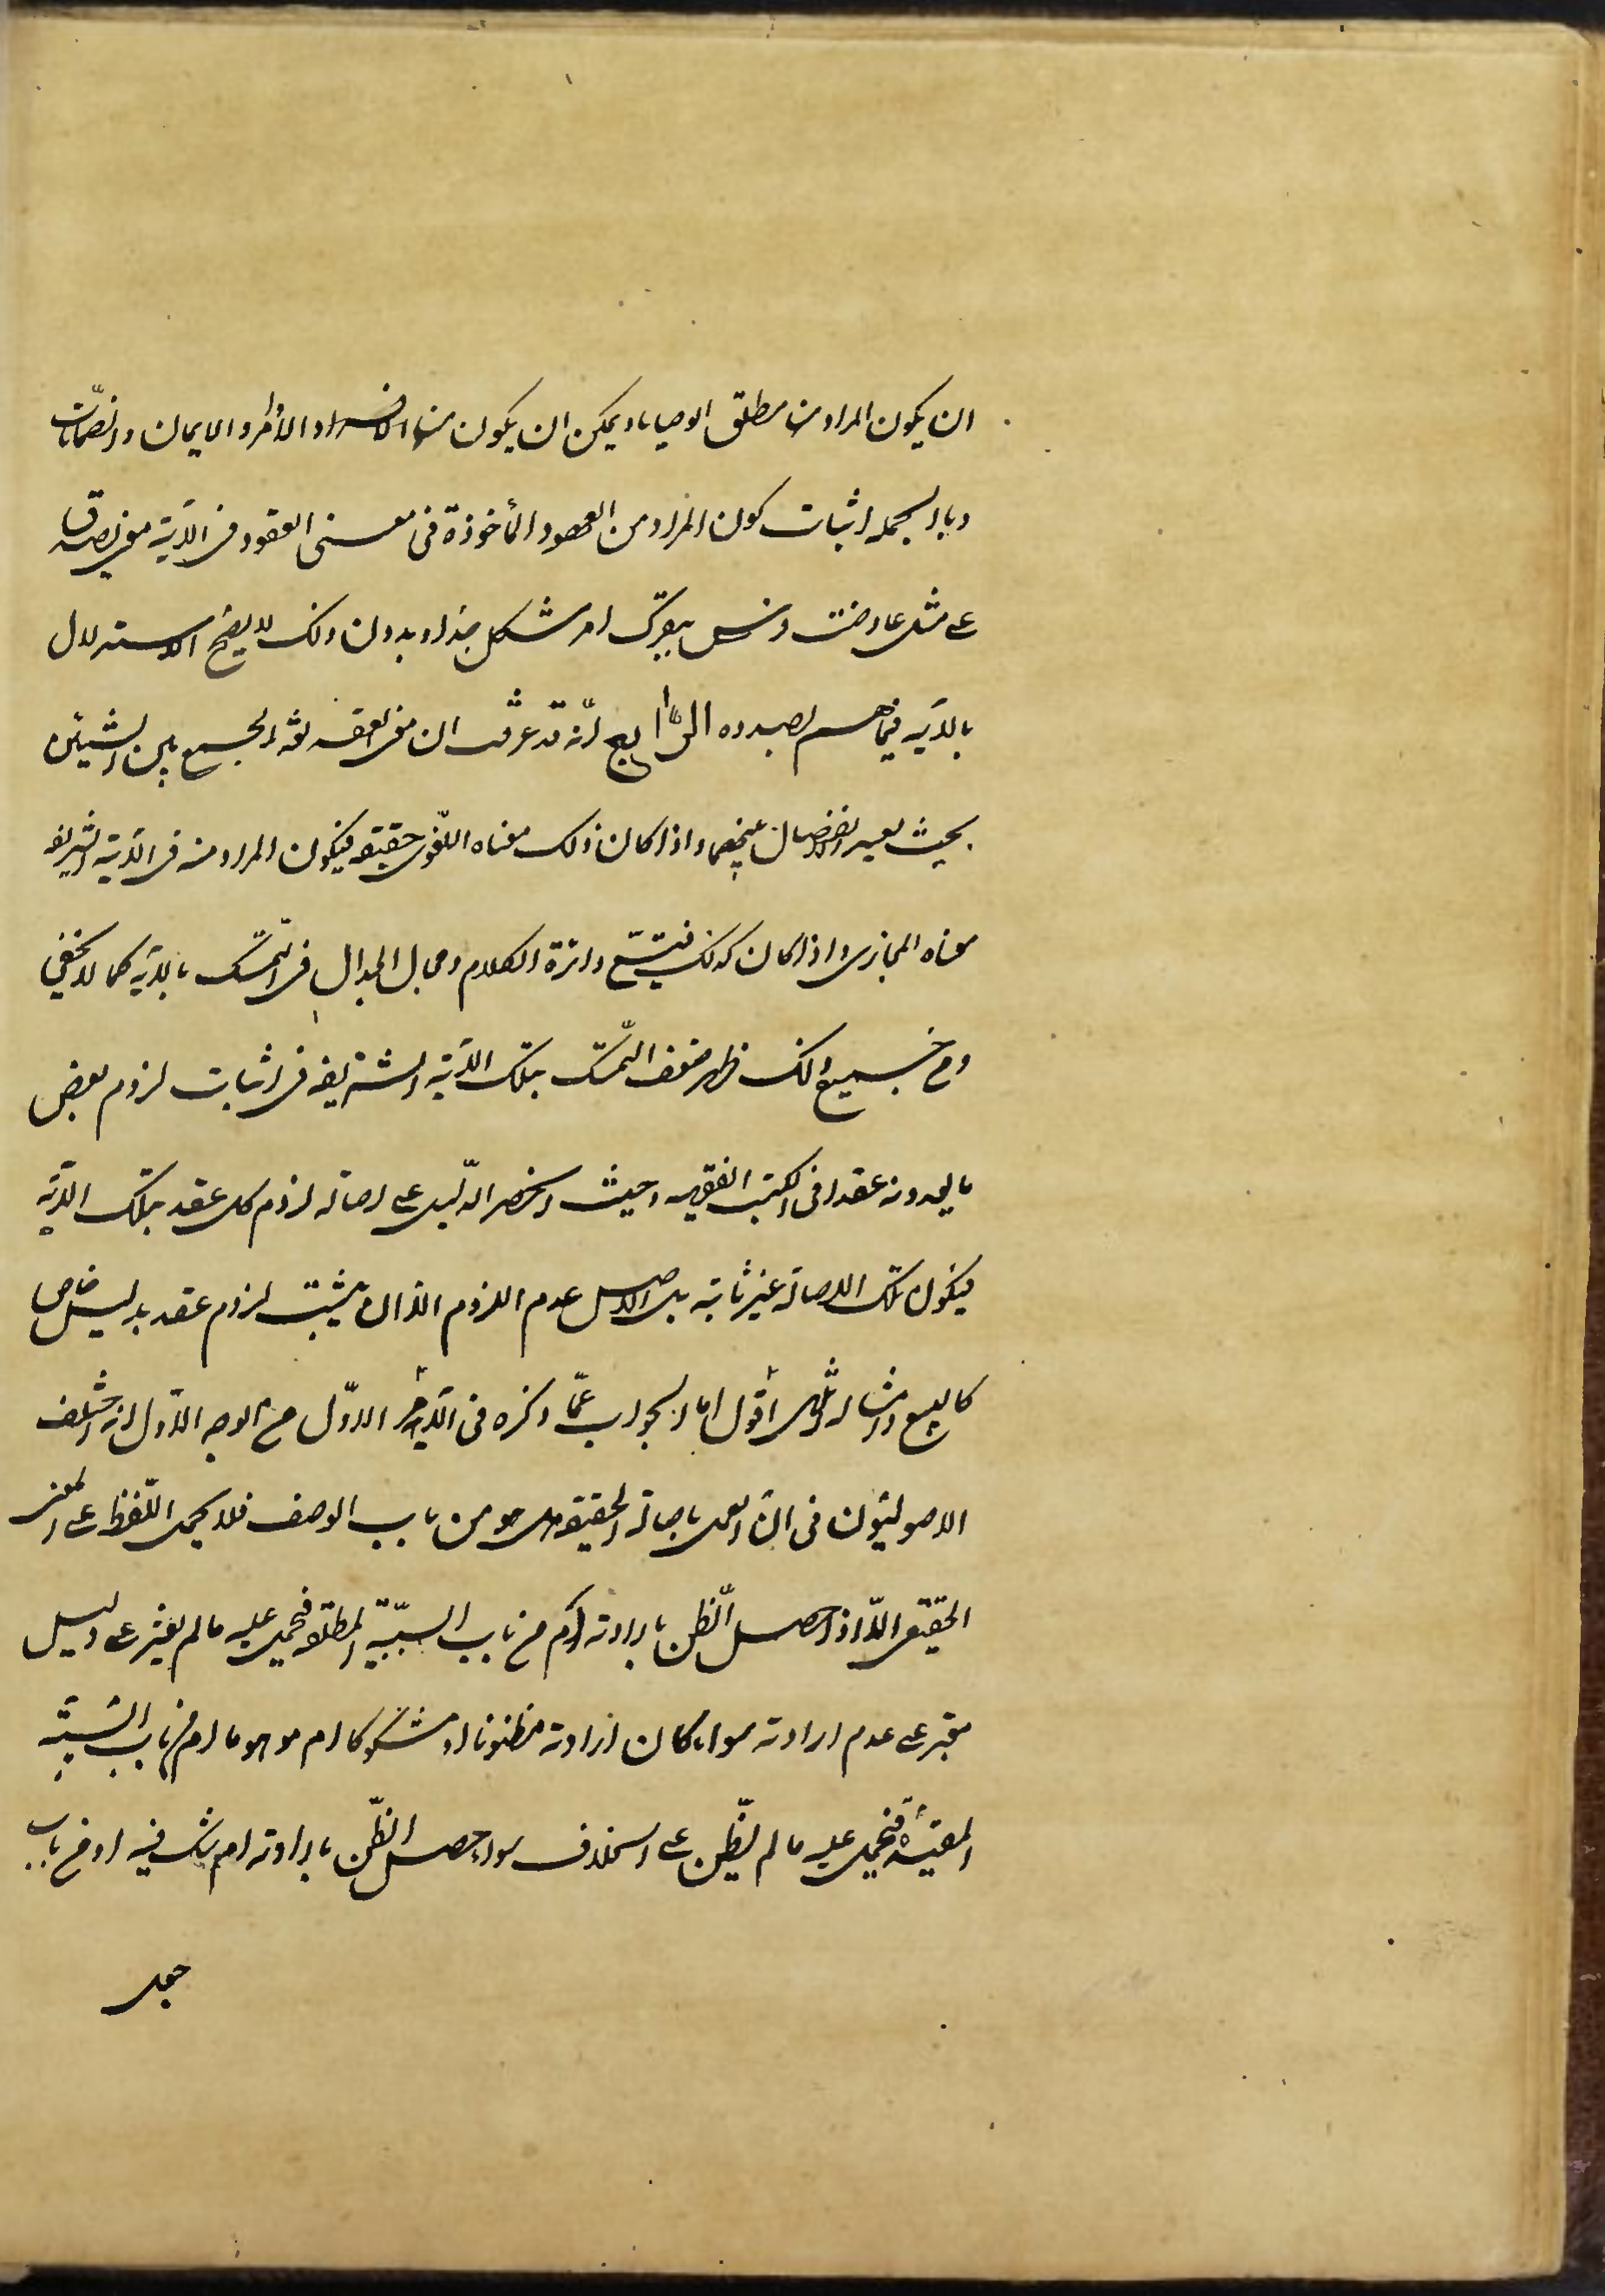 ان يكون المراد منها مطلق الوصايا ويمكن ان يكون منها الافراد الأوامر والايمان والضمانات
وبالجمله اثبات كون المراد من العهود المأخوذة فى معنى العقود فى الآية معنى يصدق
على مثل عاوضت امر مشكل جدا وبدون ذلك لا يصح الاستدلال
بالآيه فيما هم بصدده الرابع انّه قد عرفت ان معنى العقد لغة الجمع بين الشيئين
بحيث يعسر الانفصال بينهما واذا كان ذلك معناه اللّغوى حقيقة فيكون المراد منه فى الآية الشريفه
معناه المجازى واذا كان كذلك فيتسّع دائرة الكلام ومجال الجدال فى التمسّك بالآيه كما لا يخفى
ومن جميع ذلك ظهر ضعف التمسّك بتلك الآية الشريفه فى اثبات لزوم بعض
ما يعدونه عقدا فى الكتب الفقهيه وحيث انحصر الدّليل على اصالة لزوم كل عقد بتلك الآية
فيكون تلك الاصالة غير ثابتة بل الاصل عدم اللزوم الا ان يثبت لزوم عقد بدليل خاص
كالبيع وامثاله انتهى أقول اما الجواب عمّا ذكره فى الأمر الاوّل من الوجه الاول انه اختلف
الاصوليّون فى انّ العمل باصالة الحقيقه هل هو من باب الوصف فلا يحمل اللّفظ على المعنى
الحقيقى الّا اذا حصل الظّن بارادته ام من باب السببيّة المطلقة فيحمل عليه ما لم يعثر على دليل
معتبر على عدم ارادته سواء كان ارادته مظنونا او مشكوكا ام موهوما ام من باب السّببيّه
المقيّدة فيحمل عليه ما لم يظّن على الخلاف سواء حصل الظّن بارادته ام شك فيه او من باب
جعل